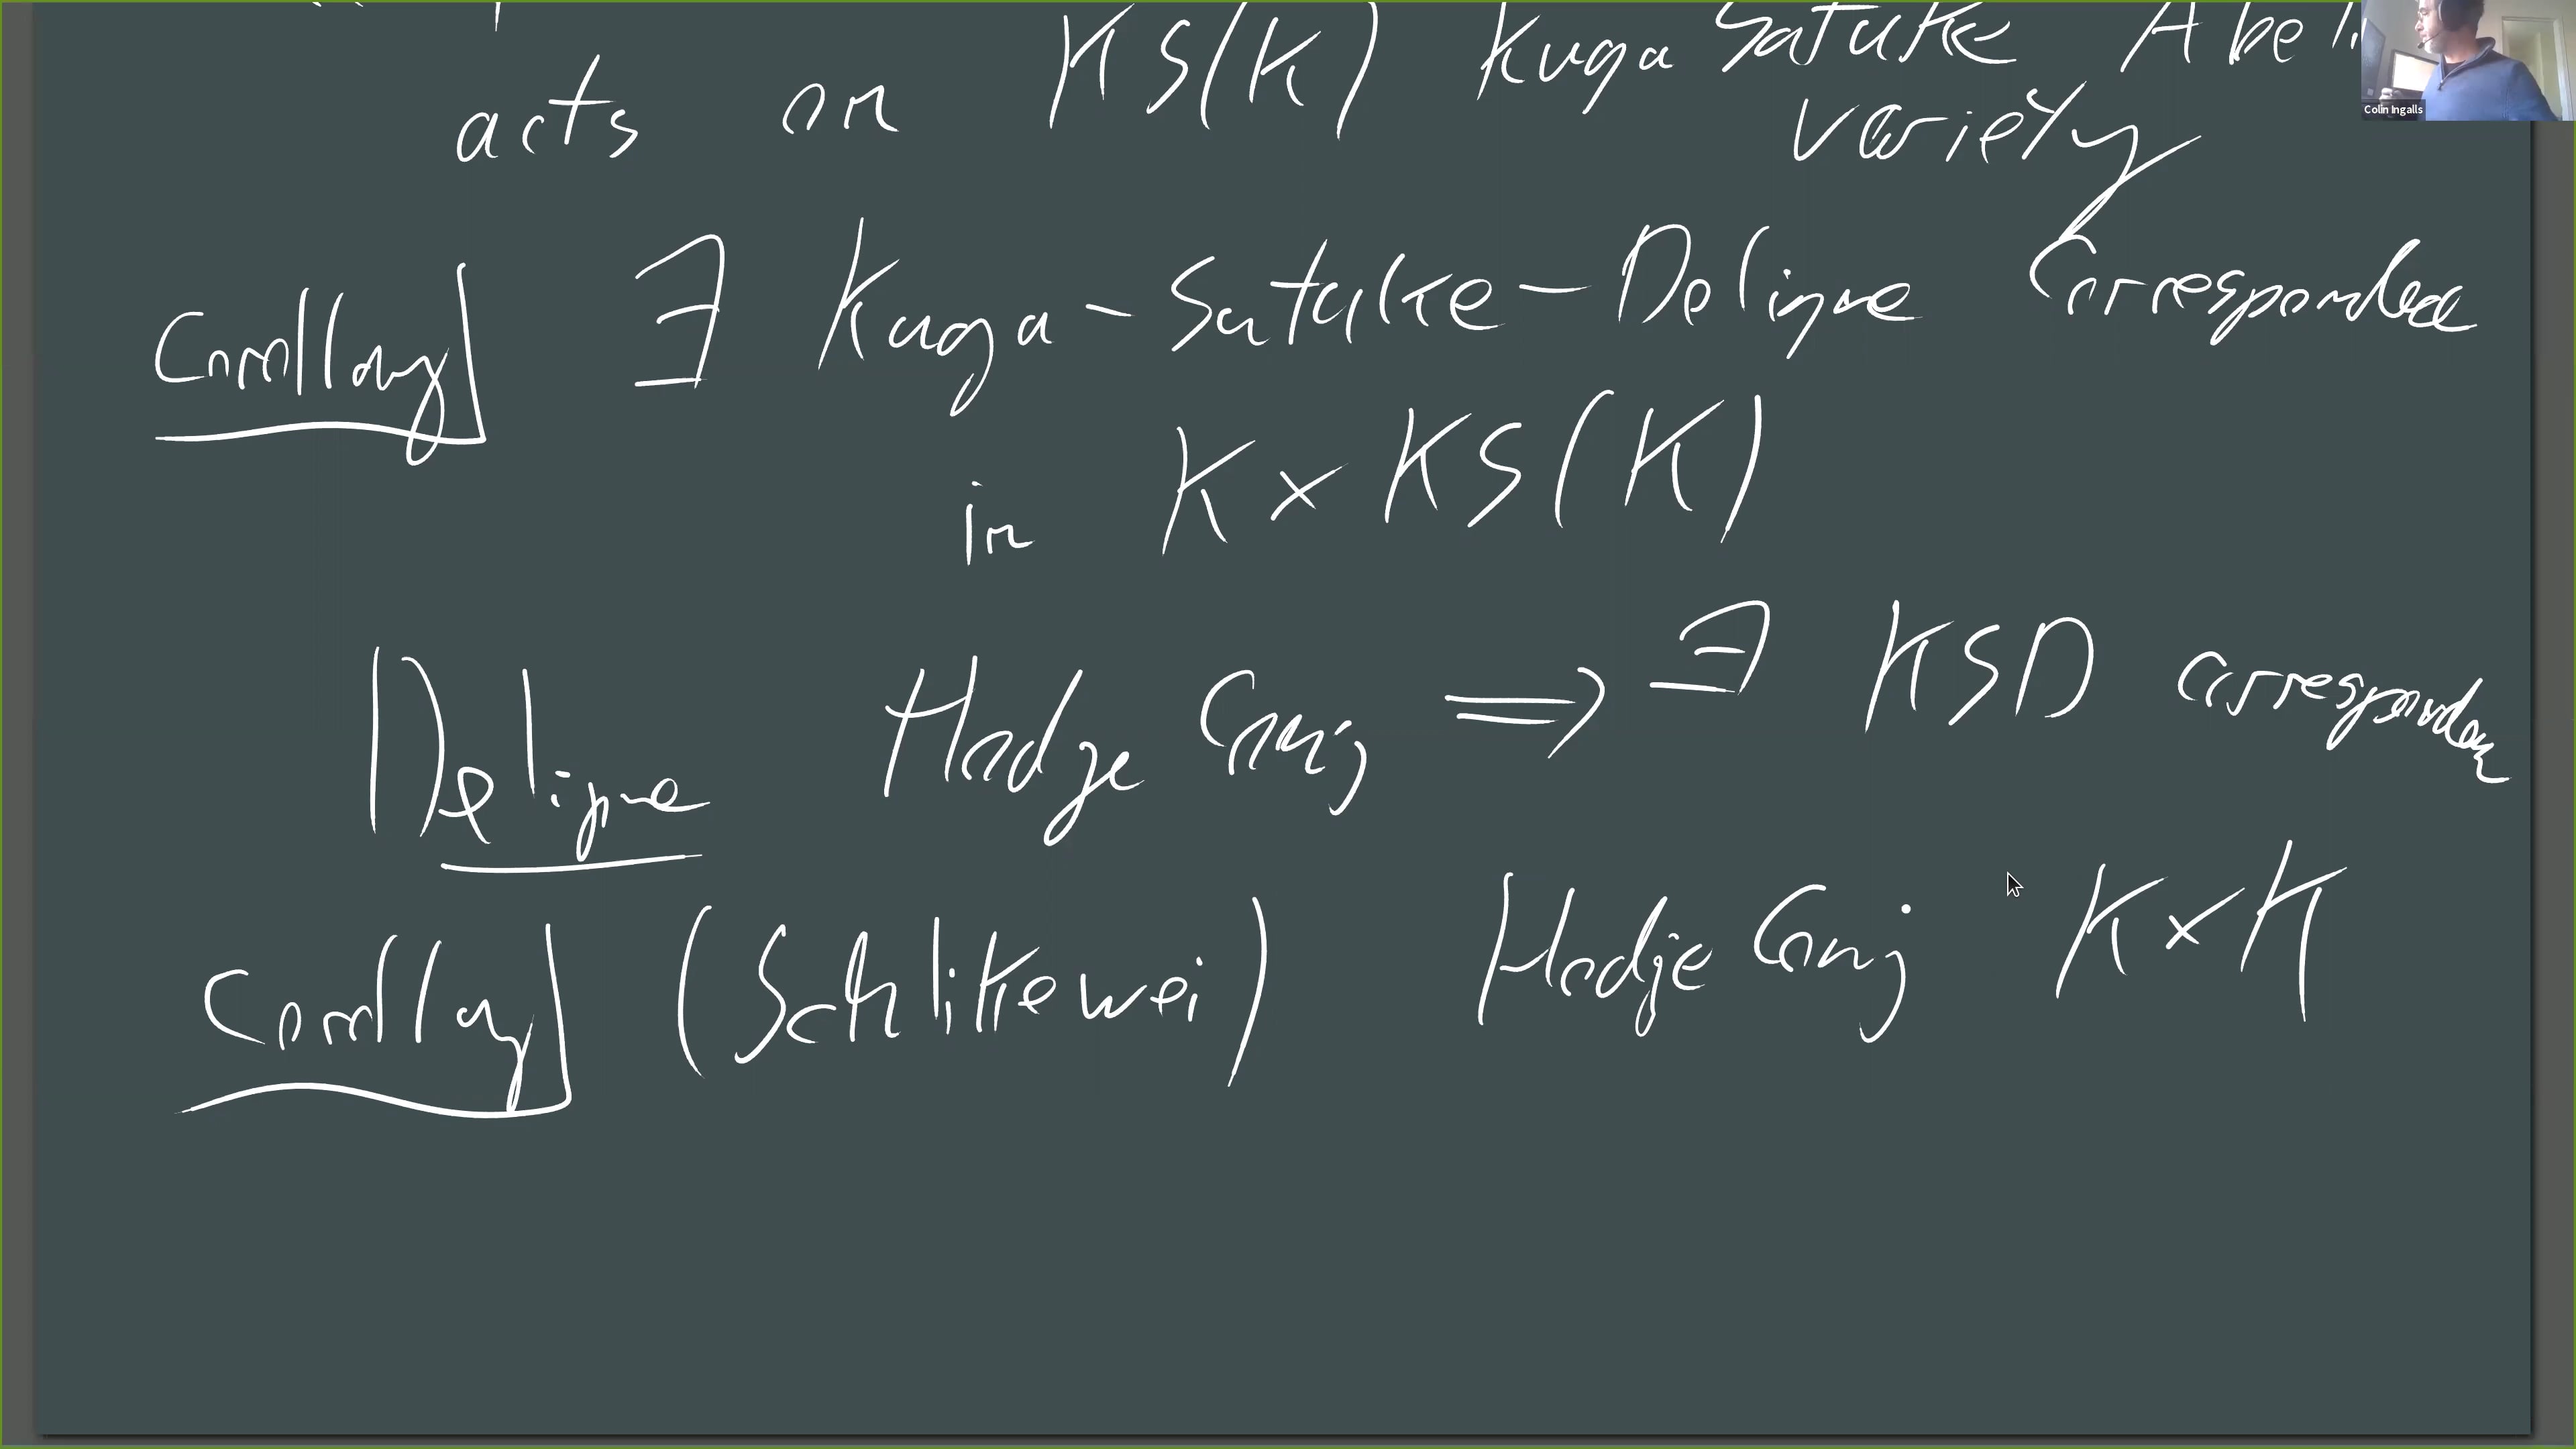 acts on KS(K) Kuga Satake Abeli
variety
Colin Ingalls
Corollary ∃ Kuga-Satake-Deligne Correspondence
in K × KS(K)
Deligne Hodge Conj ⟹ ∃ KSD correspondence
Corollary (Schlikewei) Hodge Conj K × K